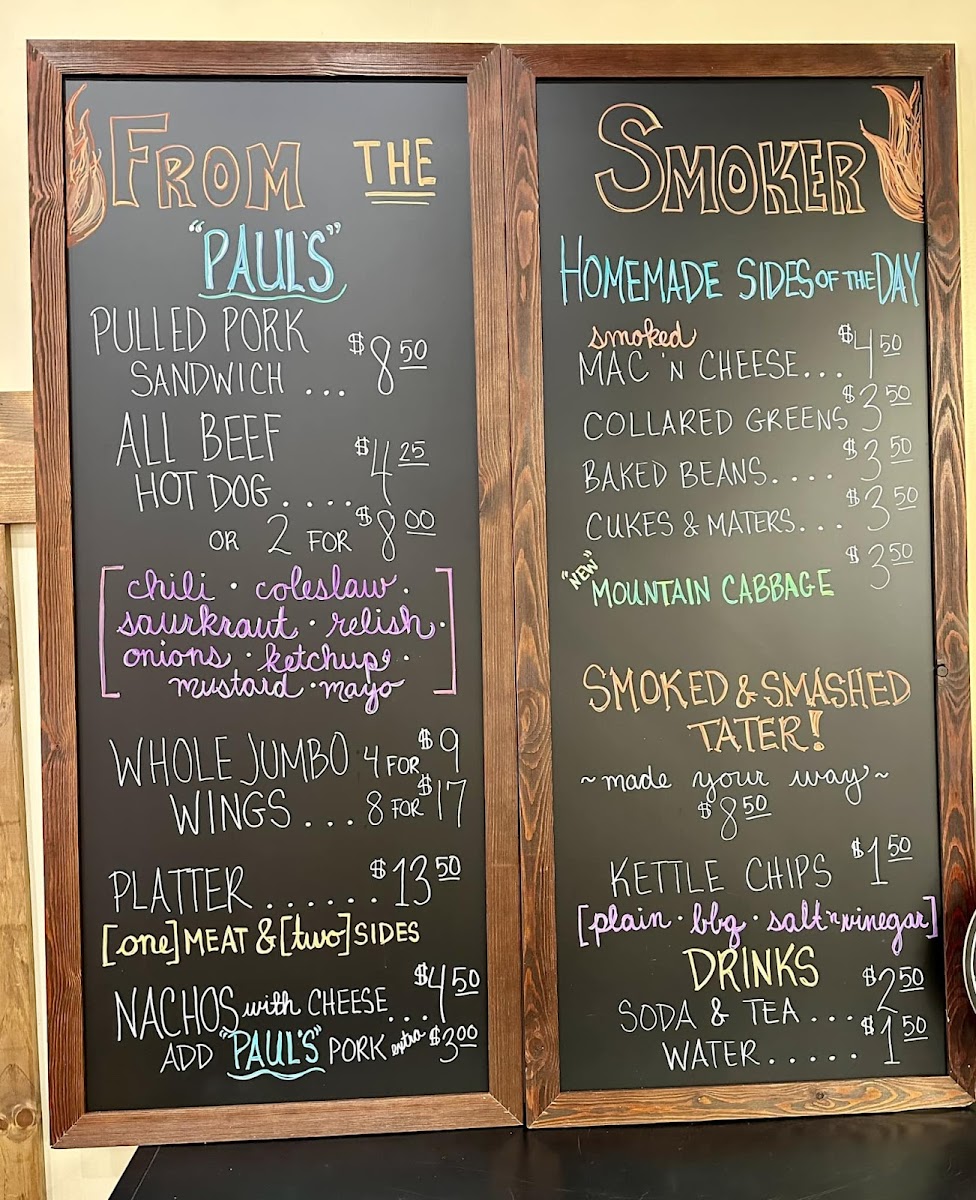 FROM THE
"PAUL'S"
PULLED PORK
SANDWICH ... $8.50
ALL BEEF
HOT DOG..... $4.25
OR 2 FOR $8.00
[chili · coleslaw ·
saurkraut · relish ·
onions · ketchup ·
mustard · mayo]
WHOLE JUMBO 4 FOR $9
WINGS... 8 FOR $17
PLATTER ...... $13.50
[one] MEAT & [two] SIDES
NACHOS with CHEESE... $4.50
ADD "PAUL'S" PORK extra $3.00
SMOKER
HOMEMADE SIDES OF THE DAY
smoked
MAC 'N CHEESE... $4.50
COLLARED GREENS $3.50
BAKED BEANS.... $3.50
CUKES & MATERS... $3.50
"NEW" MOUNTAIN CABBAGE $3.50
SMOKED & SMASHED
TATER!
~made your way~
$8.50
KETTLE CHIPS $1.50
[plain · bbq · salt 'n vinegar]
DRINKS
SODA & TEA ... $2.50
WATER..... $1.50